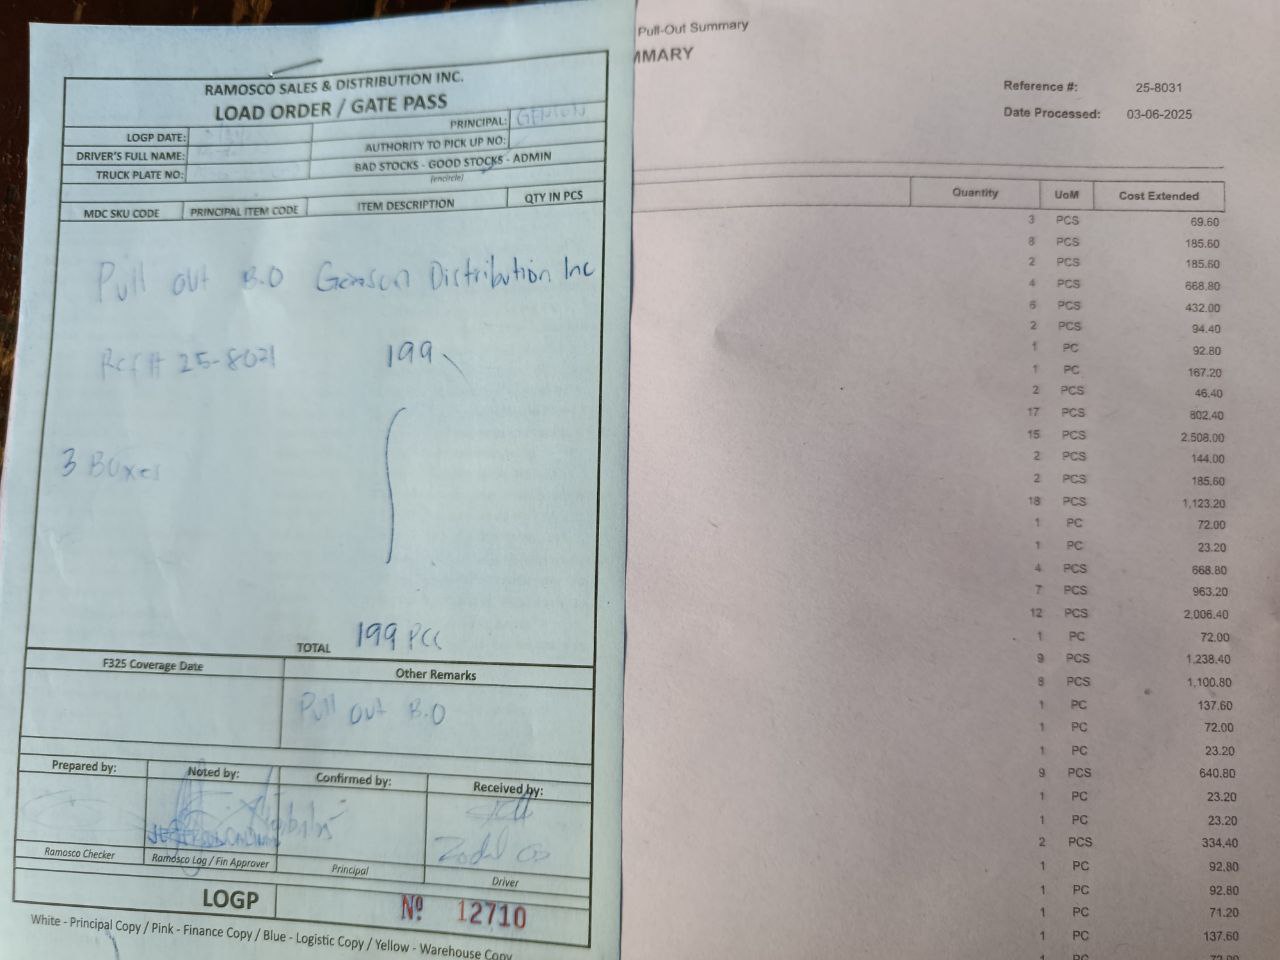 RAMOSCO SALES & DISTRIBUTION INC.
LOAD ORDER / GATE PASS
LOGP DATE:
PRINCIPAL:
DRIVER'S FULL NAME:
AUTHORITY TO PICK UP NO:
TRUCK PLATE NO:
BAD STOCKS - GOOD STOCKS - ADMIN
(encircle)
MDC SKU CODE PRINCIPAL ITEM CODE ITEM DESCRIPTION QTY IN PCS
Pull out B.O Distribution Inc
Ref# 199
3 Boxes
TOTAL 199
F325 Coverage Date Other Remarks
Pull out B.O
Prepared by: Noted by: Confirmed by: Received by:
Ramosco Checker Ramosco Log / Fin Approver Principal Driver
LOGP Nº 12710
White - Principal Copy / Pink - Finance Copy / Blue - Logistic Copy / Yellow - Warehouse Copy
Pull-Out Summary
MMARY
Reference #: 25-8031
Date Processed: 03-06-2025
Quantity UoM Cost Extended
3 PCS 69.60
8 PCS 185.60
2 PCS 185.60
4 PCS 668.80
6 PCS 432.00
2 PCS 94.40
1 PC 92.80
1 PC 167.20
2 PCS 46.40
17 PCS 802.40
15 PCS 2,508.00
2 PCS 144.00
2 PCS 185.60
18 PCS 1,123.20
1 PC 72.00
1 PC 23.20
4 PCS 668.80
7 PCS 963.20
12 PCS 2,006.40
1 PC 72.00
9 PCS 1,238.40
8 PCS 1,100.80
1 PC 137.60
1 PC 72.00
1 PC 23.20
9 PCS 640.80
1 PC 23.20
1 PC 23.20
2 PCS 334.40
1 PC 92.80
1 PC 92.80
1 PC 71.20
1 PC 137.60
1 PC 72.00